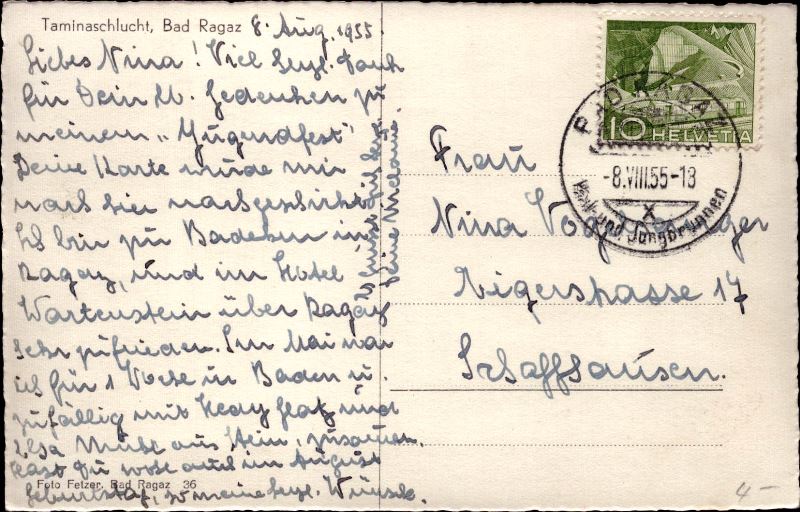 Taminaschlucht, Bad Ragaz 8. Aug. 1955.
Liebes Nina! Viel herzl. Dank
für Dein lb. Gedenken zu
meinem „Jugendfest"
Deine Karte wurde mir
nach hier nachgeschickt.
Ich bin zu Badekur in
Ragaz, und im Hotel
Wartenstein über Ragaz
sehr zufrieden. Im Mai war
ich für 1 Woche in Baden u.
zufällig mit Hedy und
aus Stein, zusamen.
Hast Du wohl auch im August
Geburtstag, so meine herzl. Wünsche.
Foto Fetzer, Bad Ragaz 36
Deine
10 HELVETIA
BAD RAGAZ
-8.VIII.55-18
X
und Jungbrunnen
Frau
Nina
Rigerstrasse 17
Schaffhausen.
4-